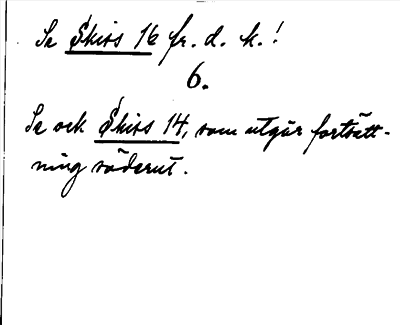 Se Skiss 16 fr. d. k.!
6.
Se ock Skiss 14, som utgår fortsätt-
ning söderut.